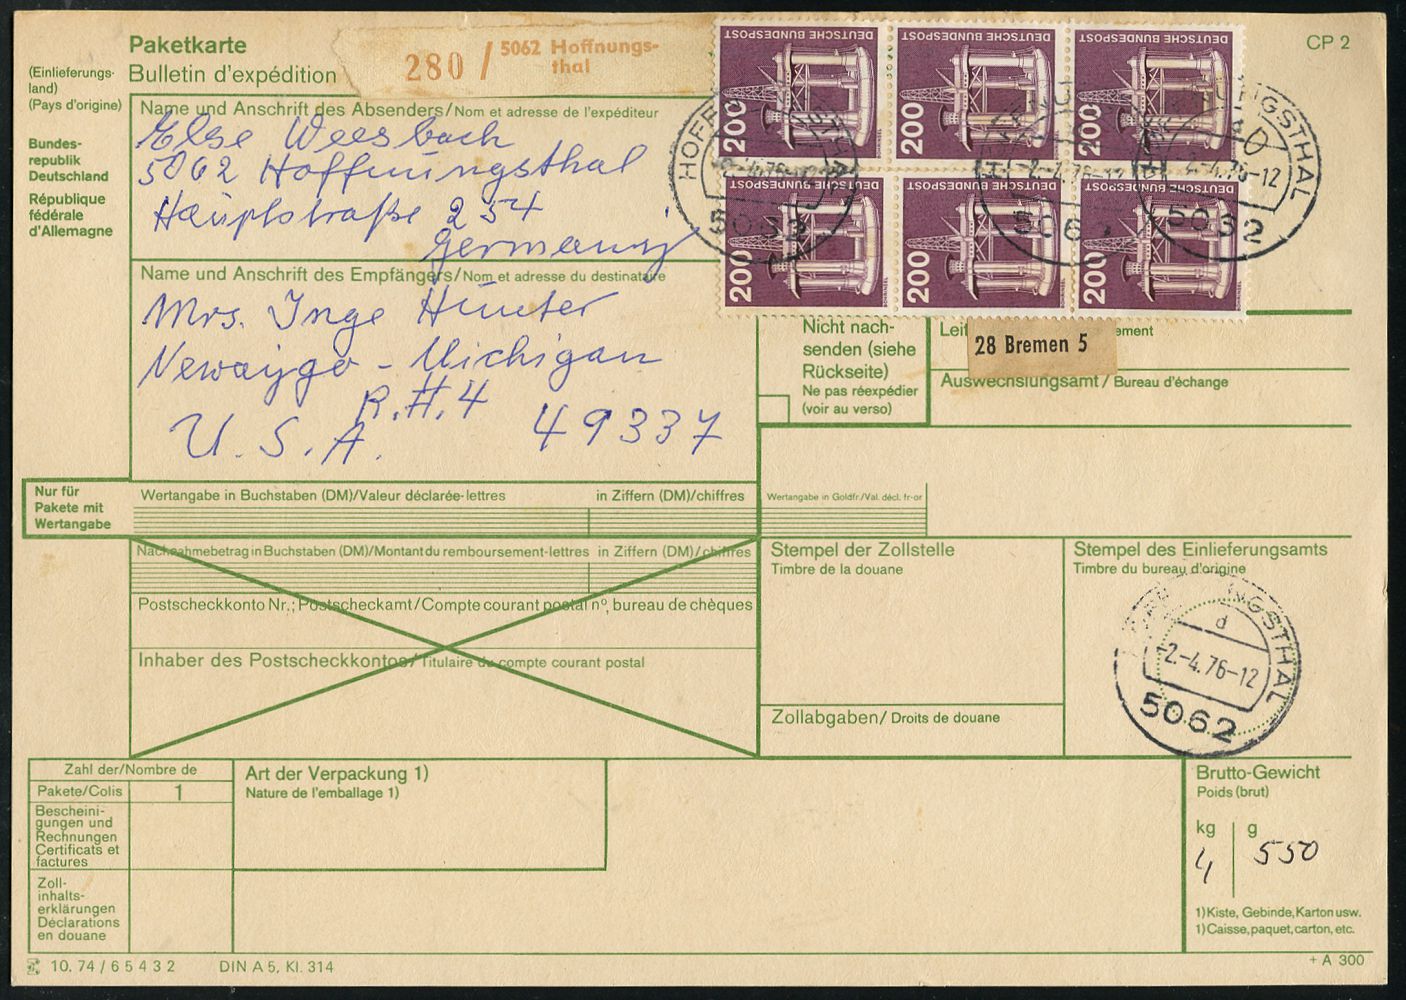 Paketkarte
Bulletin d'expédition
CP 2
280 / 5062 Hoffnungs-
thal
(Einlieferungs-
land)
(Pays d'origine)
Bundes-
republik
Deutschland
République
fédérale
d'Allemagne
Name und Anschrift des Absenders/Nom et adresse de l'expéditeur
Else Weesbach
5062 Hoffnungsthal
Hauptstraße 254
Germany
Name und Anschrift des Empfängers/Nom et adresse du destinataire
Mrs. Inge Hunter
Newaygo - Michigan
R.H.4
U.S.A. 49337
DEUTSCHE BUNDESPOST
200
DEUTSCHE BUNDESPOST
200
DEUTSCHE BUNDESPOST
200
DEUTSCHE BUNDESPOST
200
DEUTSCHE BUNDESPOST
200
DEUTSCHE BUNDESPOST
200
-2.-4.76-12
5062
NGSTHAL
-2.-4.76-12
5062
Nicht nach-
senden (siehe
Rückseite)
Ne pas réexpédier
(voir au verso)
Leit
ement
28 Bremen 5
Auswechslungsamt/Bureau d'échange
Nur für
Pakete mit
Wertangabe
Wertangabe in Buchstaben (DM)/Valeur déclarée-lettres
in Ziffern (DM)/chiffres
Wertangabe in Goldfr./Val. décl. fr-or
Nachnahmebetrag in Buchstaben (DM)/Montant du remboursement-lettres in Ziffern (DM)/chiffres
Postscheckkonto Nr.; Postscheckamt/Compte courant postal n°, bureau de chèques
Inhaber des Postscheckkontos/Titulaire du compte courant postal
Stempel der Zollstelle
Timbre de la douane
Zollabgaben/Droits de douane
Stempel des Einlieferungsamts
Timbre du bureau d'origine
NGSTHAL
d
-2.-4.76-12
5062
Zahl der/Nombre de
Pakete/Colis
1
Bescheini-
gungen und
Rechnungen
Certificats et
factures
Zoll-
inhalts-
erklärungen
Déclarations
en douane
Art der Verpackung 1)
Nature de l'emballage 1)
Brutto-Gewicht
Poids (brut)
kg
g
4
550
1) Kiste, Gebinde, Karton usw.
1) Caisse, paquet, carton, etc.
10. 74 / 6 5 4 3 2
DIN A 5, Kl. 314
+ A 300